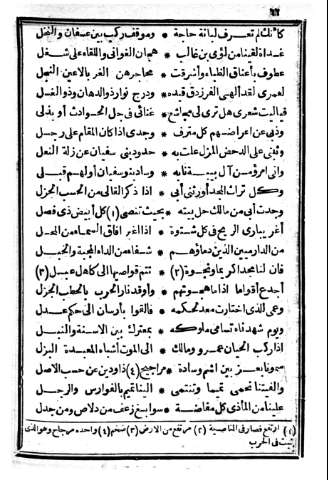 ٦٦
كأنك لم تعرف لبانة حاجة * وموقف ركب بين عسفان والنخل
غداة لقينا من لؤي بن غالب * هجان الغواني واللقاء على شغل
عطون بأعناق الظباء وأشرقت * محاجرهن الغر بالاعين النجل
لعمري لقد ألهى الفرزدق قيده * ودرج نوار ذو الدهان وذو الغسل
فياليت شعري هل ترى لي مجاشع * غنائي في جل الحوادث أو بذلي
وذبي عن أعراضهم كل مترف * وجدي اذا كان المقام على رجل
وثبتي على الدحض المزل علت به * جدود بني سفيان عن زلة النعل
واني امرؤ من آل بيبة نابه * وسادبنو سفيان أولهم قبلي
وكل تراث المجد أورثني أبي * اذا ذكر الغالي من الحسب الجزل
وجدت أبي من مالك حل بيته * بحيث تنصى (١) كل أبيض ذي فضل
أغر يباري الريح في كل شتوة * اذا اغبر افاق السماء من المحل
من الدارميين الذين دماؤهم * شفاء من الداء المجنة والخبل
فان لنا مجدا كريما ونجوة (٢) * تتم قواصيها الى كاهل عبل (٣)
أجدع أقواما اذا ما هجوتهم * وأوقد نار الحرب بالحطب الجزل
وعمي الذي اختارت معد محكمه * فالقوا بأرسان الى حكم عدل
ويوم شهدناه تسامى ملوكه * بمعترك بين الاسنة والنبل
اذا ركب الحيان عمرو ومالك * الى الموت أشباه المعبدة البزل
سمونا بعز بين اشم وسادة * مراجيح (٤) ذاودين عن حسب الاصل
والفتنا نحمي تميما وتنتمي * الينا تميم بالفوارس والرجل
علينا من الماذي كل مفاضة * سوابيغ زغف من دلاص ومن جدل
(١) ارتفع فصار في الناصية (٢) مرتفع من الارض (٣) ضخم (٤) واحده مرجاح وهو الذي
يثبت في الحرب